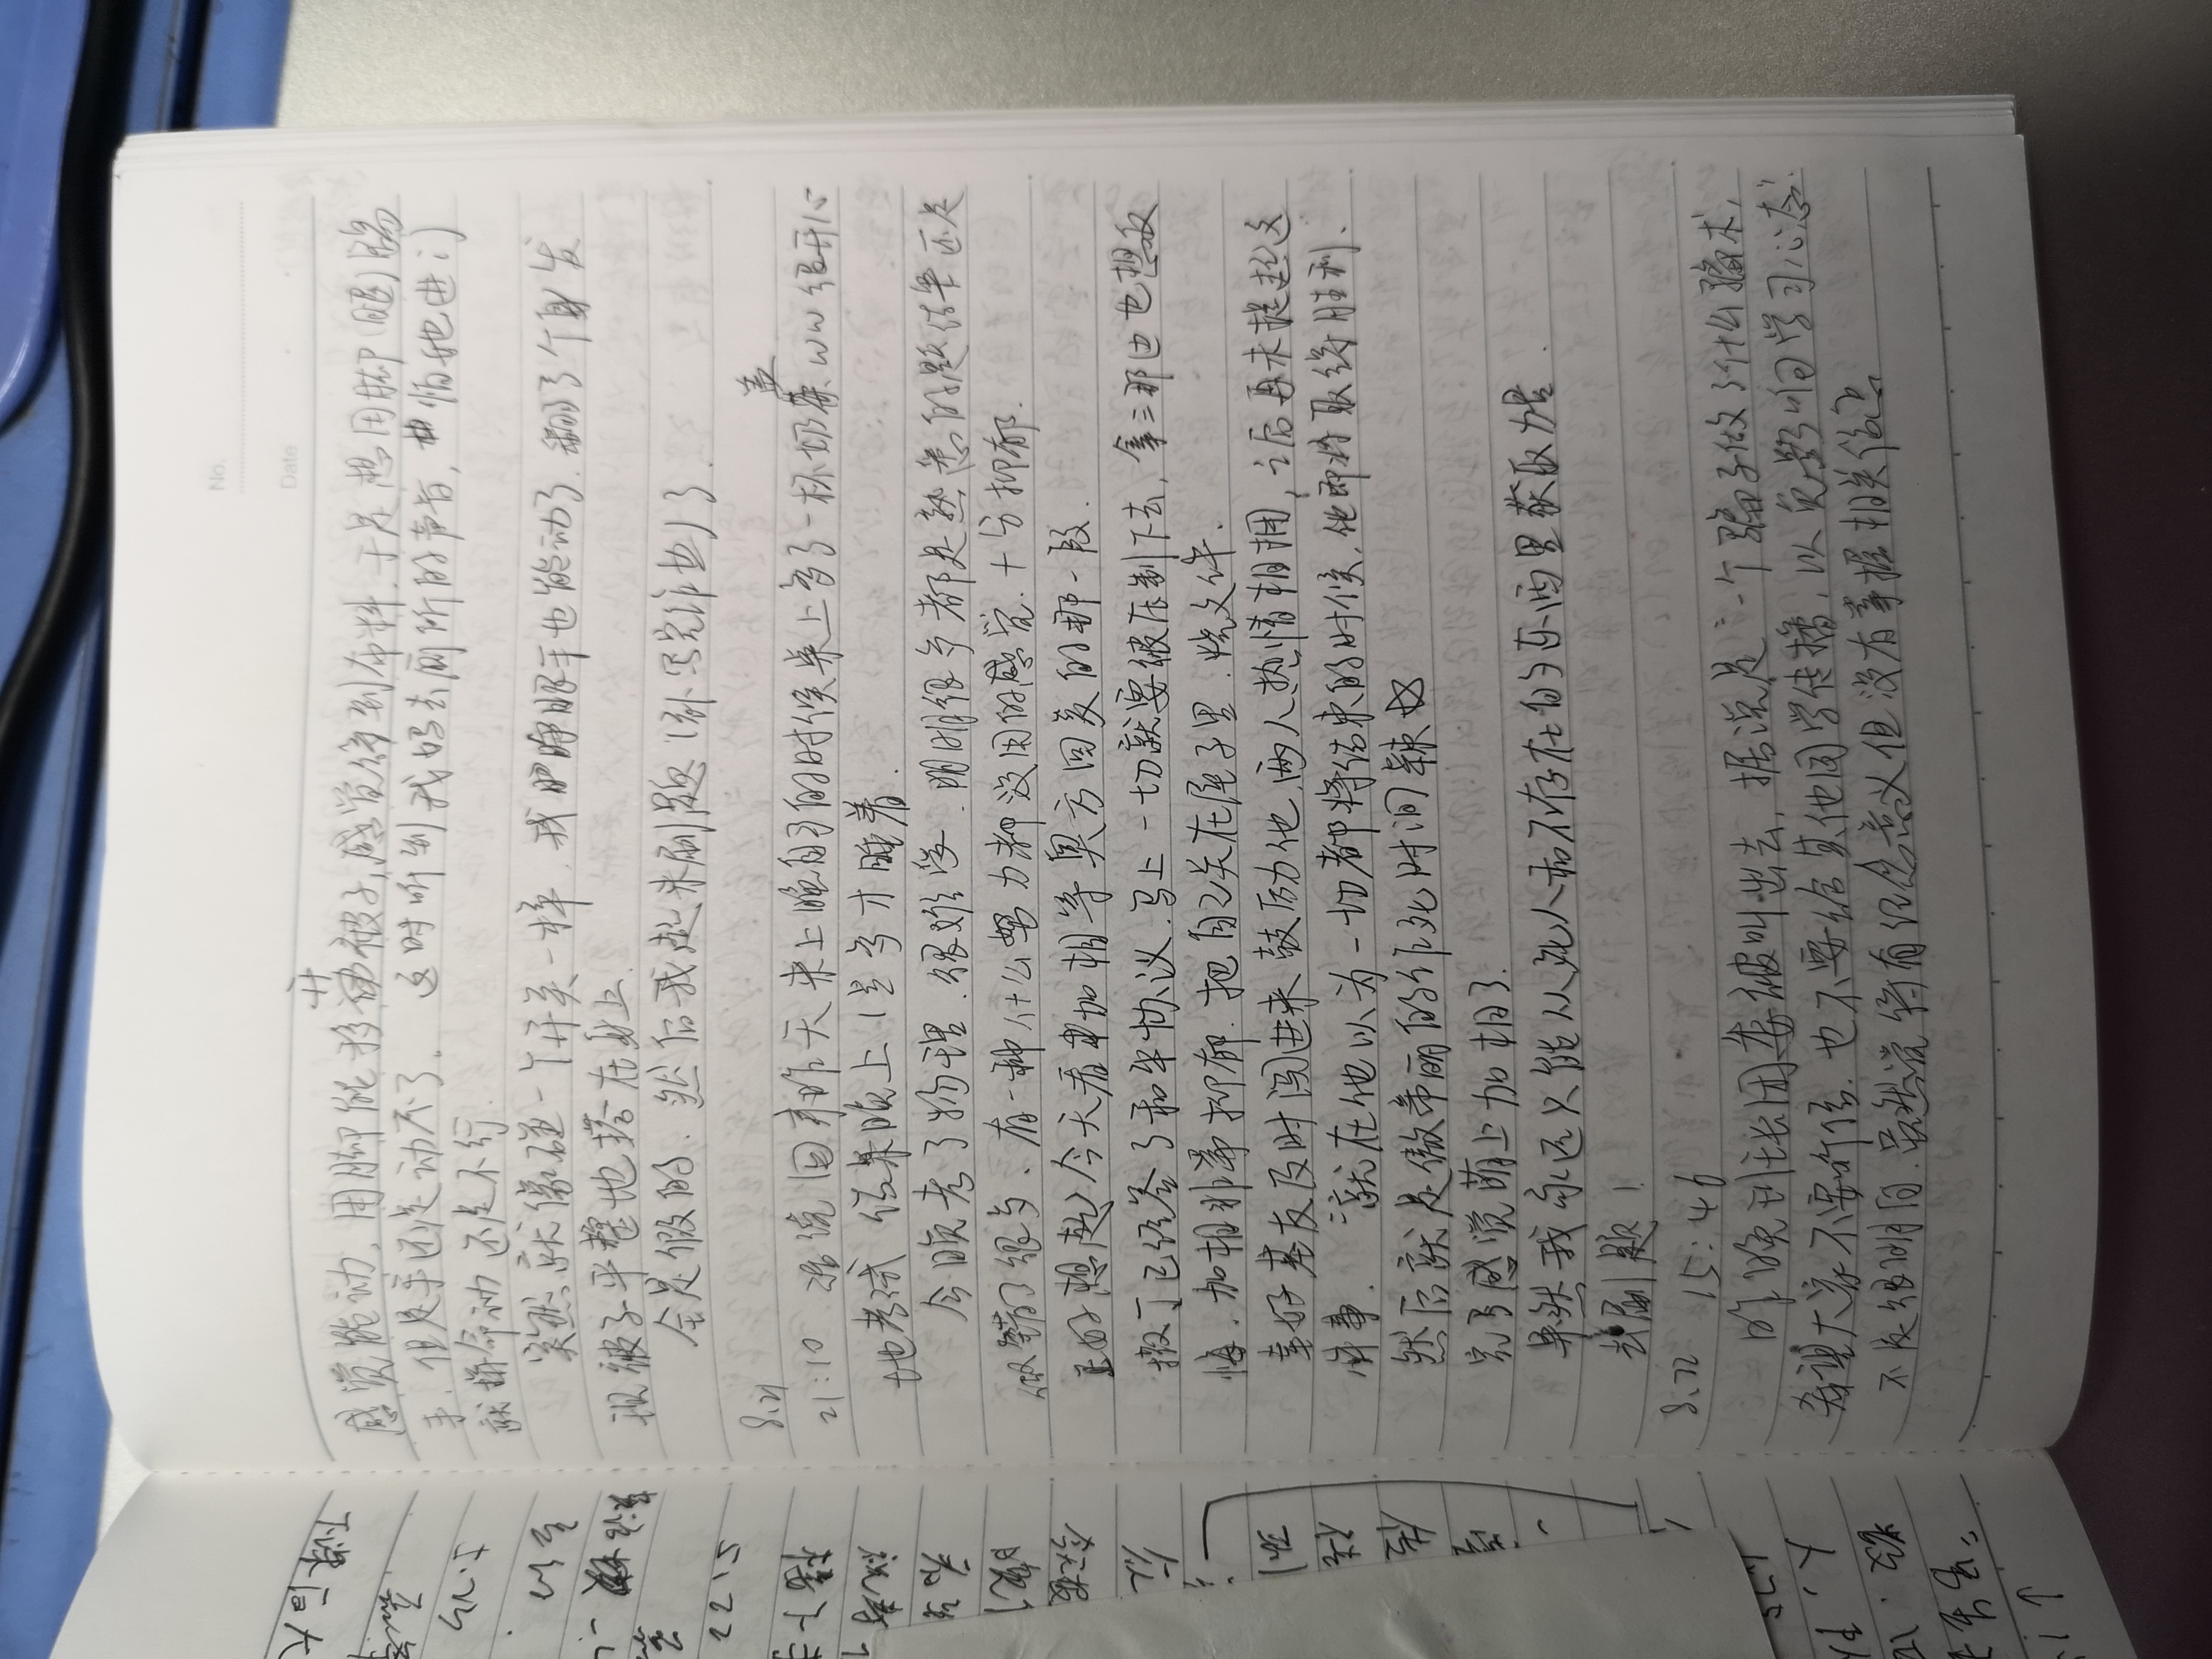 No.
Date
开
感觉能动,用脚能移动被子,感觉得到布料.于是想用脚(腿)踢
手.但是手还是动不了。 这时听到我妈去厕所的声音, 怕她进门
就拼命动 还是不行.
突然就像碰一个开关一样.我睁眼手也能动了.翻了个身发
现被子平整地搭在身上.
全是假的.然后我起来刷题(补写完作业)了.
8.21
盖
21:10 话说回来昨天来上晚自习的时候桌上多了一杯奶 ww 很开心
地考试 结果晚上1点多才睡着.
今晚考了物理.很难受.明明很多都是熟悉的题结果还是
做错了很多、有一种什么努力都没用的感觉.十分抑郁.
正好想起今天看加相等奥方回复的那一段.
撒丁已经签了和平协议.马上一切就要被压制下去,拿三那边也想反
悔.加相非常抑郁.把自己关在屋子里.烧文件.
幸好基友及时闯进来鼓励他.两人热情相拥,之后再未提起这
件事. 就在他以为一切都将结束的时候,他即将取得胜利.
然后就是傲帝丽的作死时间辣
完了感觉萌上加相了.
果然我永远只能从死人和不存在的东西里获取力量.
去刷题!
8.22 15:46
昨晚班长团委被叫出去,据说是“一个骗子做了什么骗术,
希望大家不要听信.也不要给其他同学传播,以免影响学习心态”.
不是很明白.虽然觉得有纪念意义但没有掌握相关信息